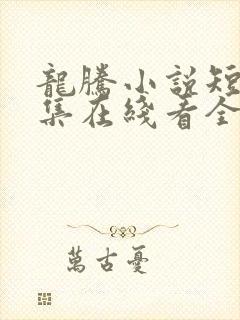 龍騰小說短
集在綫看全
萬古憂